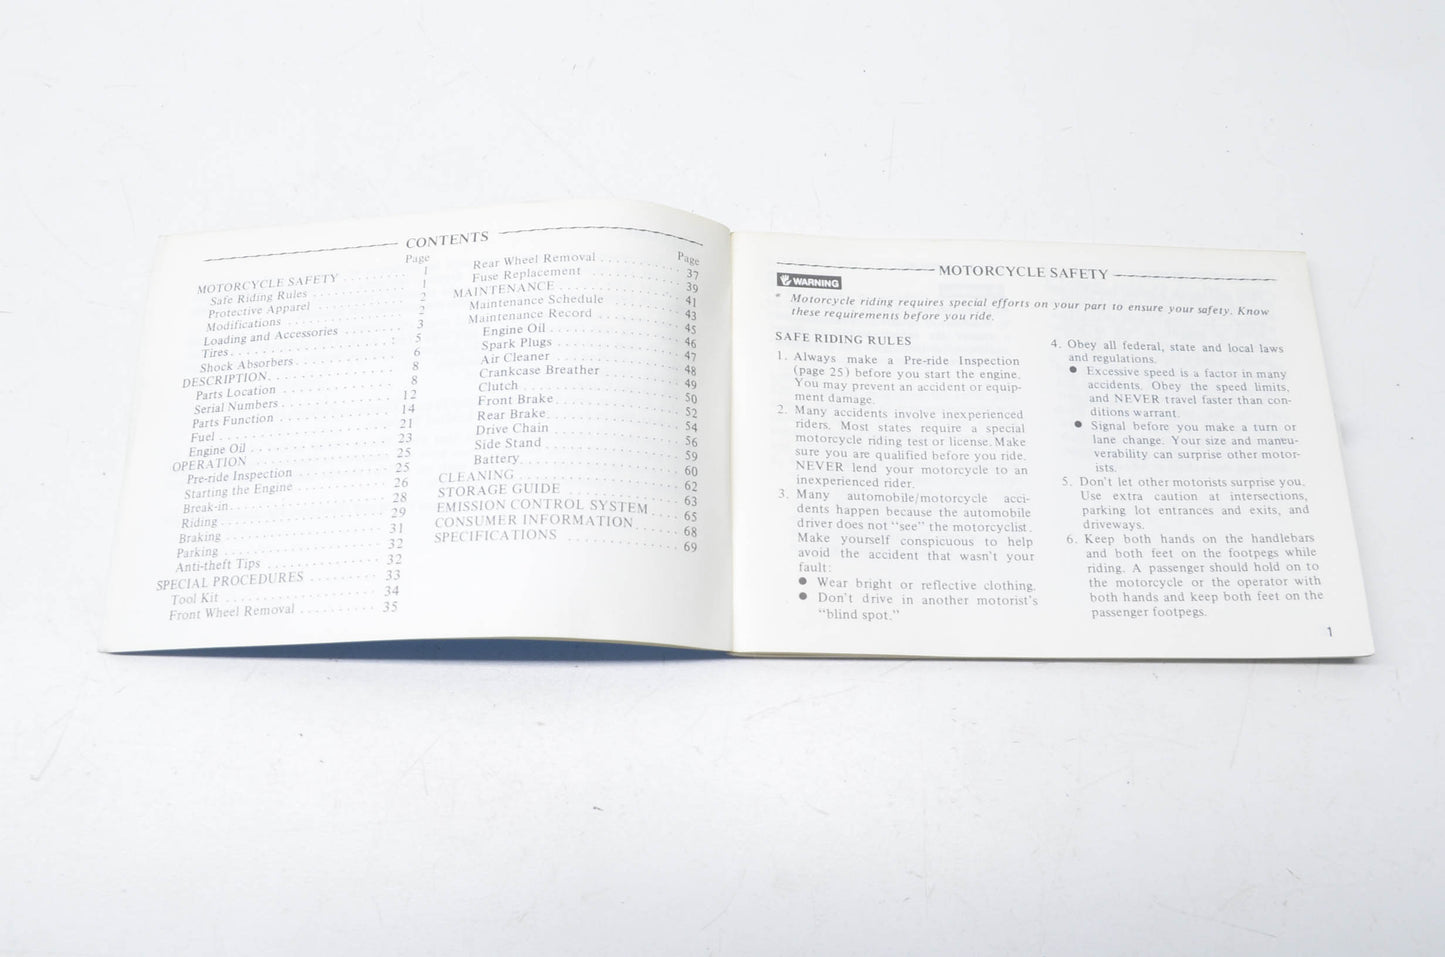 CONTENTS
Page
MOTORCYCLE SAFETY ........ 1
Safe Riding Rules ........ 1
Protective Apparel ........ 2
Modifications ........ 2
Loading and Accessories ........ 3
Tires ........ 5
Shock Absorbers ........ 6
DESCRIPTION ........ 8
Parts Location ........ 8
Serial Numbers ........ 12
Parts Function ........ 14
Fuel ........ 21
Engine Oil ........ 23
OPERATION ........ 25
Pre-ride Inspection ........ 25
Starting the Engine ........ 26
Break-in ........ 28
Riding ........ 29
Braking ........ 31
Parking ........ 32
Anti-theft Tips ........ 32
SPECIAL PROCEDURES ........ 33
Tool Kit ........ 34
Front Wheel Removal ........ 35
Page
Rear Wheel Removal ........ 37
Fuse Replacement ........ 39
MAINTENANCE ........ 41
Maintenance Schedule ........ 43
Maintenance Record ........ 45
Engine Oil ........ 46
Spark Plugs ........ 47
Air Cleaner ........ 48
Crankcase Breather ........ 49
Clutch ........ 50
Front Brake ........ 52
Rear Brake ........ 54
Drive Chain ........ 56
Side Stand ........ 59
Battery ........ 60
CLEANING ........ 62
STORAGE GUIDE ........ 63
EMISSION CONTROL SYSTEM ........ 65
CONSUMER INFORMATION ........ 68
SPECIFICATIONS ........ 69
MOTORCYCLE SAFETY
WARNING
* Motorcycle riding requires special efforts on your part to ensure your safety. Know
these requirements before you ride.
SAFE RIDING RULES
1. Always make a Pre-ride Inspection
(page 25) before you start the engine.
You may prevent an accident or equip-
ment damage.
2. Many accidents involve inexperienced
riders. Most states require a special
motorcycle riding test or license. Make
sure you are qualified before you ride.
NEVER lend your motorcycle to an
inexperienced rider.
3. Many automobile/motorcycle acci-
dents happen because the automobile
driver does not "see" the motorcyclist.
Make yourself conspicuous to help
avoid the accident that wasn't your
fault:
● Wear bright or reflective clothing.
● Don't drive in another motorist's
"blind spot."
4. Obey all federal, state and local laws
and regulations.
● Excessive speed is a factor in many
accidents. Obey the speed limits,
and NEVER travel faster than con-
ditions warrant.
● Signal before you make a turn or
lane change. Your size and maneu-
verability can surprise other motor-
ists.
5. Don't let other motorists surprise you.
Use extra caution at intersections,
parking lot entrances and exits, and
driveways.
6. Keep both hands on the handlebars
and both feet on the footpegs while
riding. A passenger should hold on to
the motorcycle or the operator with
both hands and keep both feet on the
passenger footpegs.
1